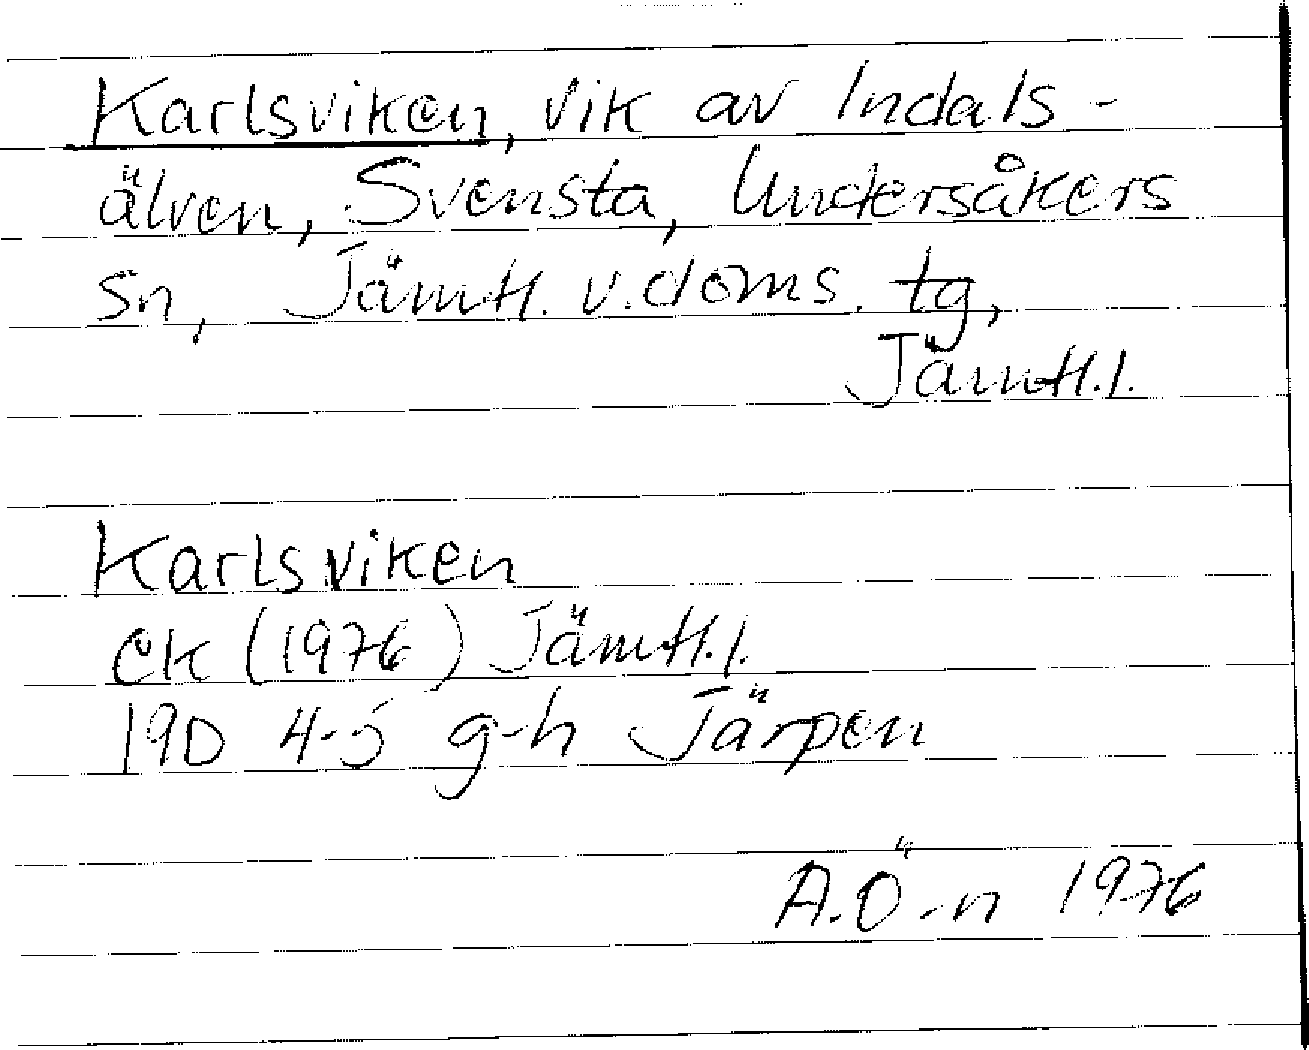 Karlsviken, vik av Indals-
älven, Svensta, Undersåkers
sn, Jämtl. v. doms. tg,
Jämtl.l.
Karlsviken
EK (1976) Jämtl.l.
19D 4-5 g-h Järpen
A.Ö-n 1976